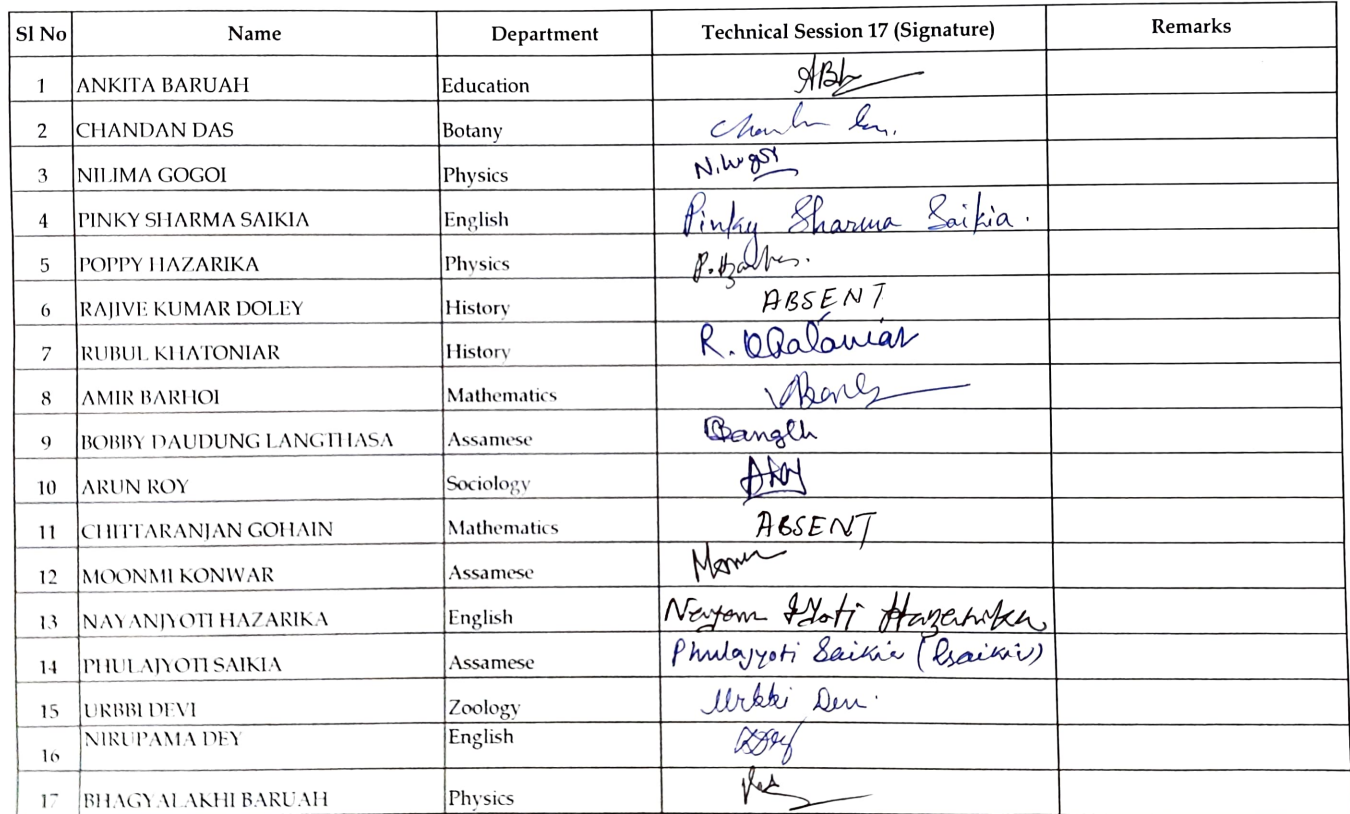 Sl No Name Department Technical Session 17 (Signature) Remarks
1 ANKITA BARUAH Education
2 CHANDAN DAS Botany
3 NILIMA GOGOI Physics
4 PINKY SHARMA SAIKIA English Pinky Sharma Saikia.
5 POPPY HAZARIKA Physics
6 RAJIVE KUMAR DOLEY History ABSENT
7 RUBUL KHATONIAR History R.
8 AMIR BARHOI Mathematics
9 BOBBY DAUDUNG LANGTHASA Assamese
10 ARUN ROY Sociology
11 CHITTARANJAN GOHAIN Mathematics ABSENT
12 MOONMI KONWAR Assamese
13 NAYANJYOTI HAZARIKA English Nayan Jyoti Hazarika
14 PHULAJYOTI SAIKIA Assamese Phulajyoti Saikia (Psaikia)
15 URBBI DEVI Zoology
16 NIRUPAMA DEY English
17 BHAGYALAKHI BARUAH Physics